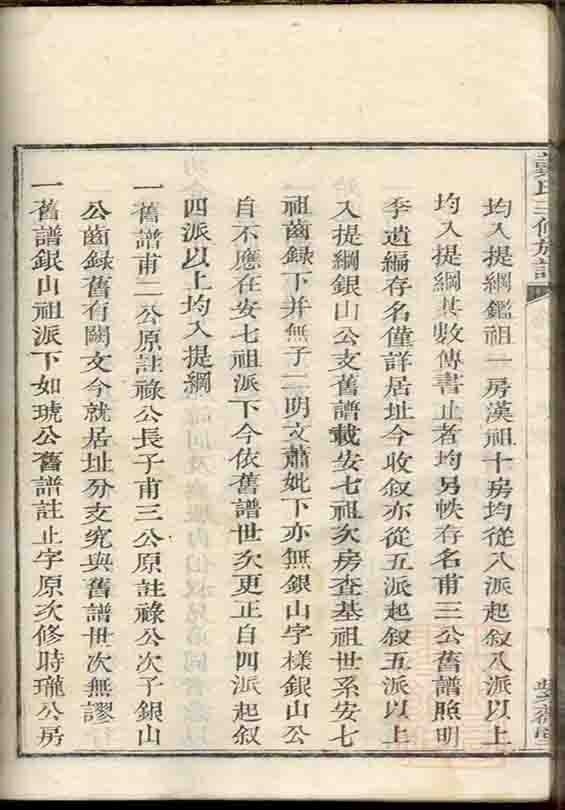 氏三修族譜
均入提綱鑑祖一房漢祖十房均從八派起叙八派以上
均入提綱其數傳書止者均另帙存名甫三公舊譜照明
季遺編存名僅詳居址今收叙亦從五派起叙五派以上
入提綱銀山公支舊譜載安七祖次房查基祖世系安七
祖齒録下并無子二明文蕭妣下亦無銀山字樣銀山公
自不應在安七祖派下今依舊譜世次更正自四派起叙
四派以上均入提綱
一舊譜甫二公原註祿公長子甫三公原註祿公次子銀山
公齒録舊有闕文今就居址分支究與舊譜世次無謬
一舊譜銀山祖派下如琥公舊譜註止字原次修時瓏公房